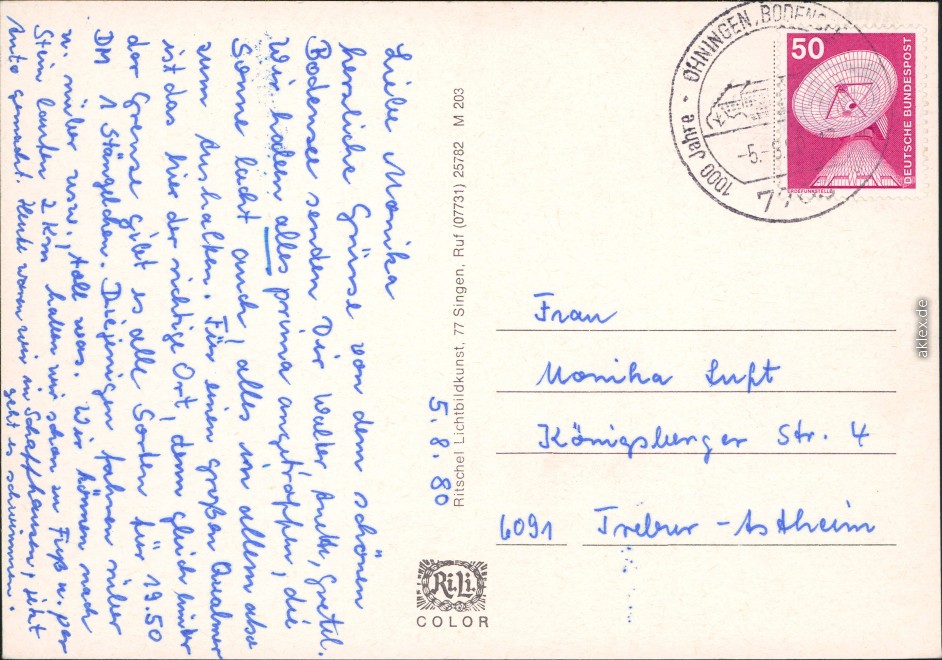 Liebe Monika
herzliche Grüsse von dem schönen
Bodensee senden Dir Walter, Ruth, Gretel.
Wir haben alles prima angetroffen, die
Sonne lacht auch, alles in allem also
zum Aushalten. Für einen großen Qualmer
ist das hier der richtige Ort, denn gleich hinter
der Grenze gibt es alle Sorten für 19.50
DM 1 Stängelchen. Diejenigen fahren rüber
u. nüber usw., toll was. Wir können nach
Stein laufen 2 km haben wir schon zu Fuß u. per
Auto gemacht. Heute waren wir in Schaffhausen, jetzt
geht es schwimmen.
5.8.80
Ritschel Lichtbildkunst, 77 Singen, Ruf (07731) 25782 M 203
Ri.Li.
COLOR
1000 Jahre · ÖHNINGEN, BODENSEE
-5.-8.
50
DEUTSCHE BUNDESPOST
ERDEFUNKSTELLE
Frau
Monika Luft
Königsberger Str. 4
6091 Trebur - Astheim
aklex.de